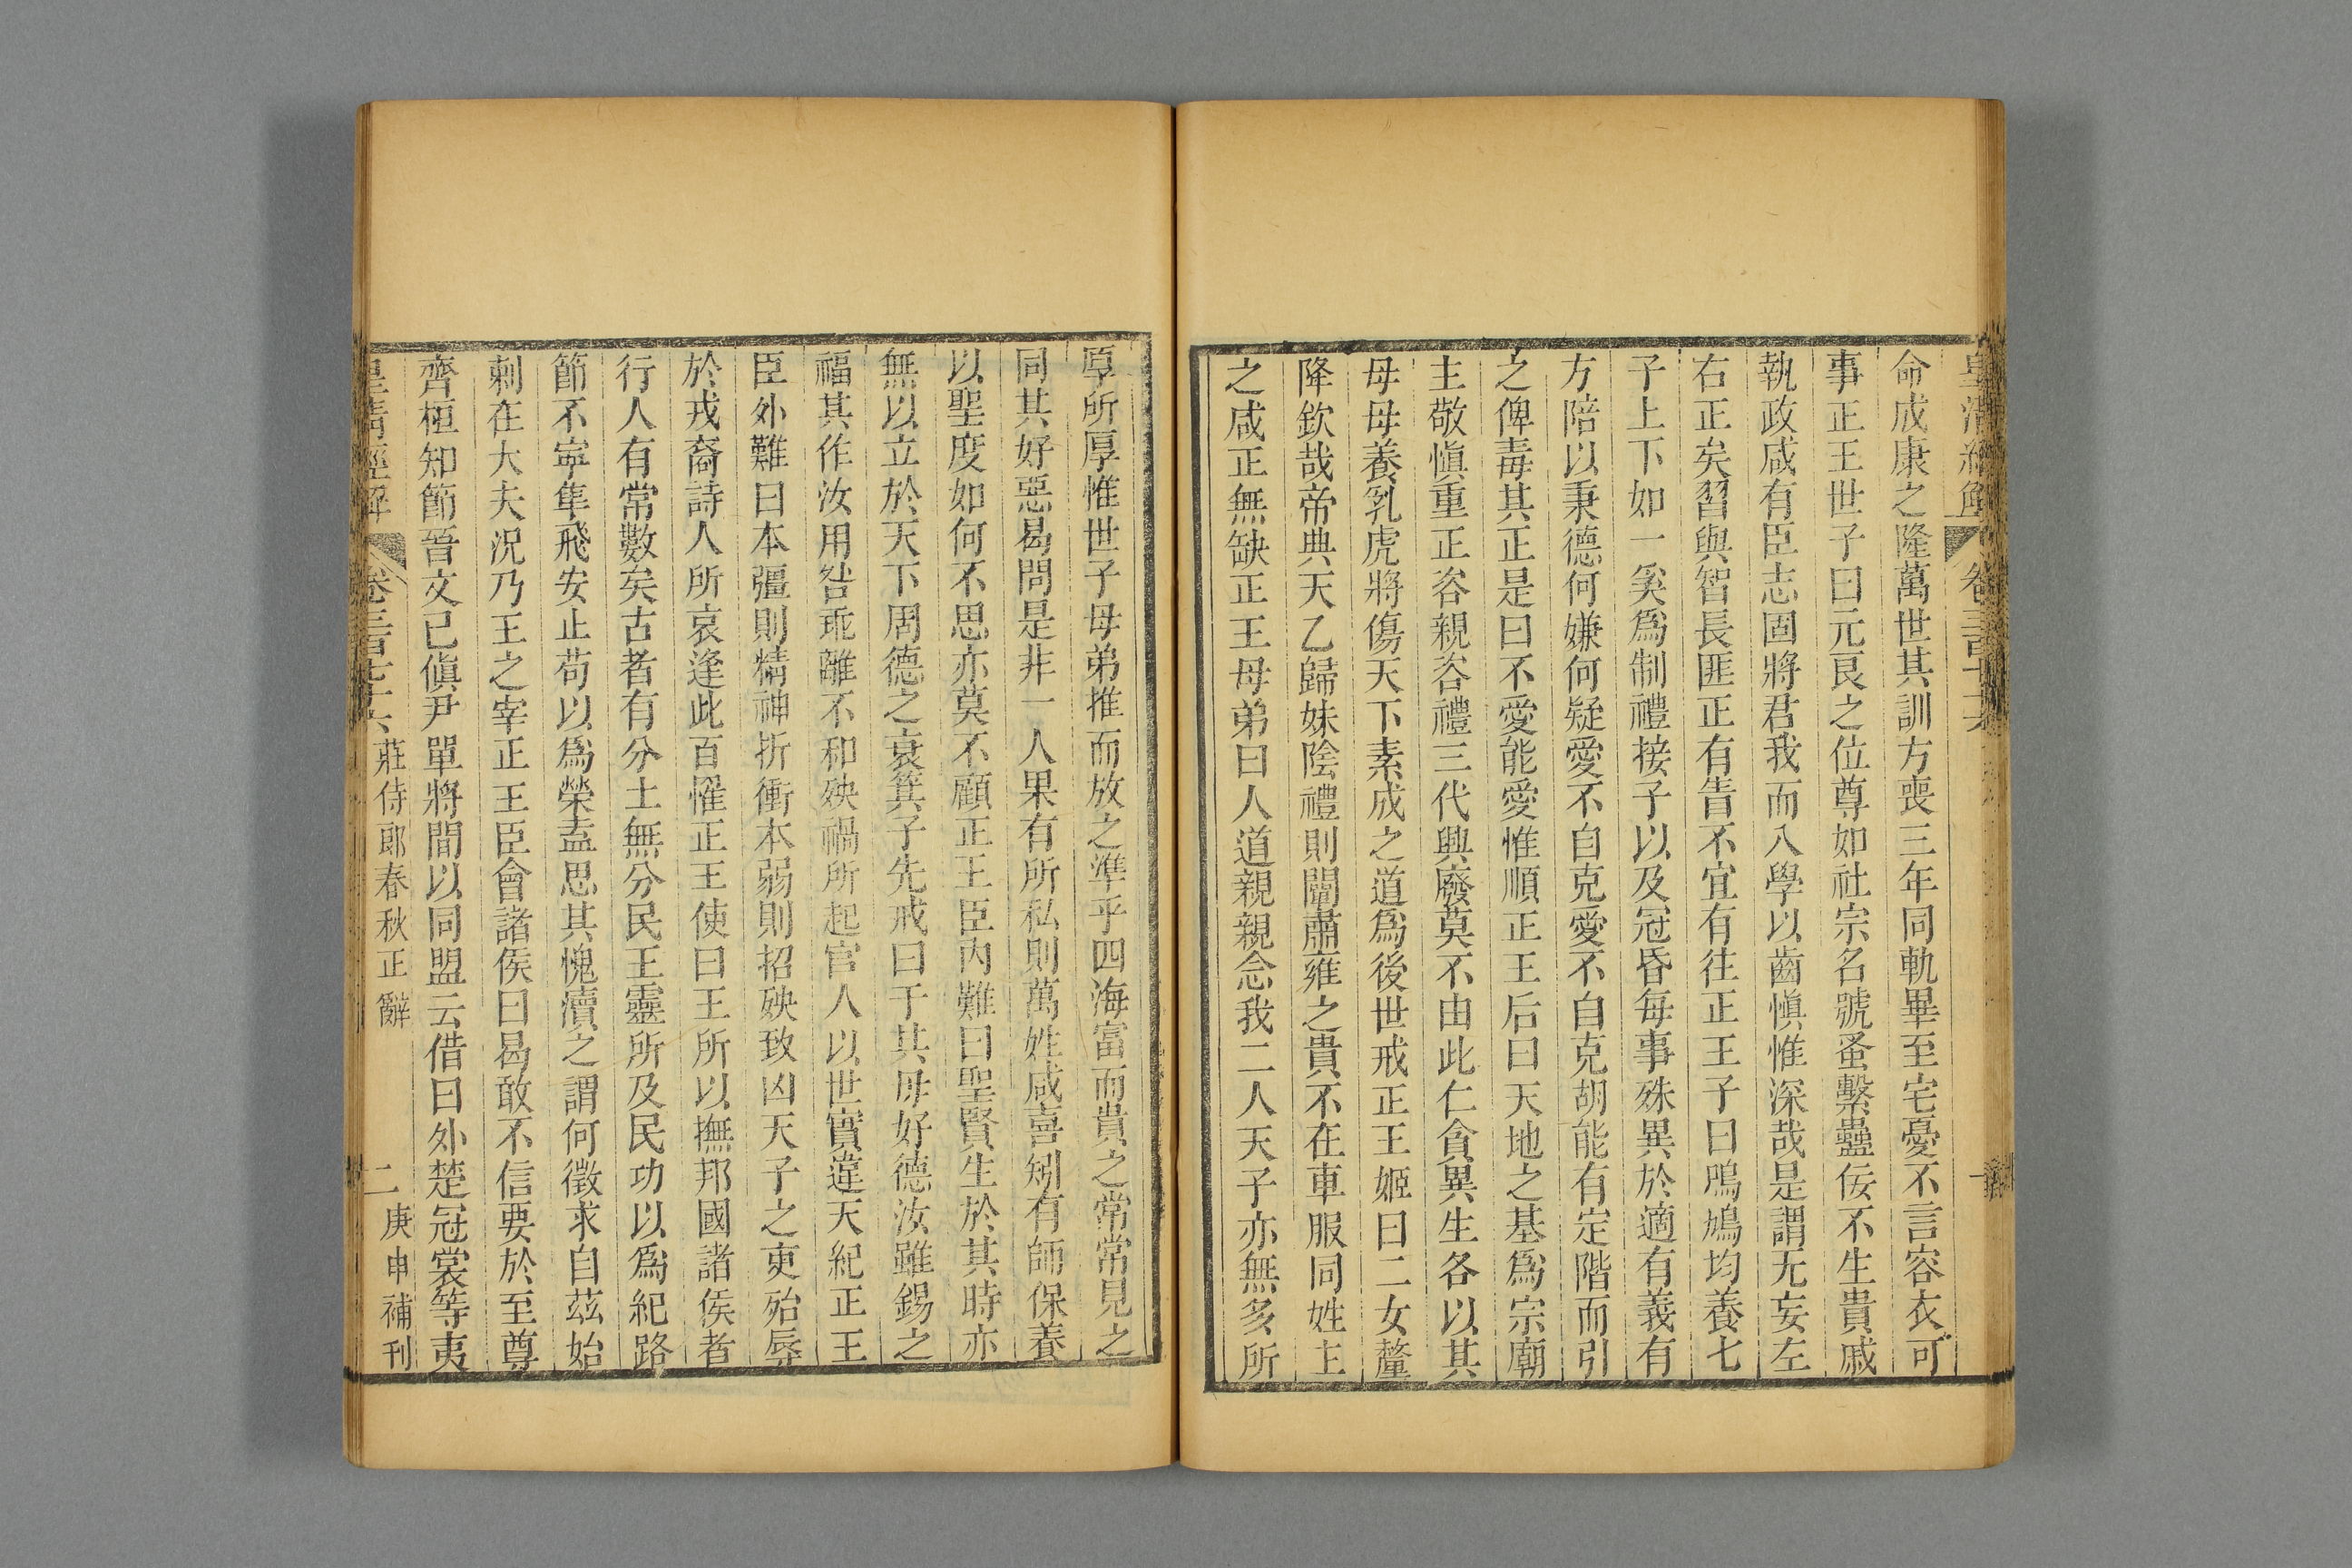 命成康之隆萬世其訓方喪三年同軌畢至宅憂不言容衣可
事正王世子曰元良之位尊如社宗名號蚤繫蠱佞不生貴戚
執政咸有臣志固將君我而入學以齒愼惟深哉是謂无妄左
右正矣習與智長匪正有眚不宜有往正王子曰鳲鳩均養七
子上下如一奚爲制禮接子以及冠昏每事殊異於適有義有
方陪以秉德何嫌何疑愛不自克愛不自克胡能有定階而引
之俾毒其正是曰不愛能愛惟順正王后曰天地之基爲宗廟
主敬愼重正咨親咨禮三代興廢莫不由此仁貪異生各以其
母母養乳虎將傷天下素成之道爲後世戒正王姬曰二女釐
降欽哉帝典天乙歸妹陰禮則闡肅雍之貴不在車服同姓主
之咸正無缺正王母弟曰人道親親念我二人天子亦無多所
厚所厚惟世子母弟推而放之準乎四海富而貴之常常見之
同其好惡曷問是非一人果有所私則萬姓咸喜矧有師保養
以聖度如何不思亦莫不顧正王臣內難曰聖賢生於其時亦
無以立於天下周德之衰箕子先戒曰于其毋好德汝雖錫之
福其作汝用咎乖離不和殃禍所起官人以世實違天紀正王
臣外難曰本彊則精神折衝本弱則招殃致凶天子之吏殆辱
於戎裔詩人所哀逢此百懼正王使曰王所以撫邦國諸侯者
行人有常數矣古者有分土無分民王靈所及民功以爲紀路
節不寧隼飛安止苟以爲榮盍思其愧瀆之謂何徵求自茲始
刺在大夫況乃王之宰正王臣會諸侯曰曷敢不信要於至尊
齊桓知節晉文已傎尹單將閒以同盟云借曰外楚冠裳等夷
皇淸經解 卷三百七十六 莊侍郎春秋正辭 二 庚申補刊